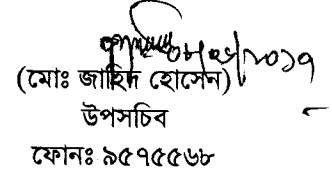 (মোঃ জাহিদ হোসেন)
উপসচিব
ফোনঃ ৯৫৭৫৫৬৮